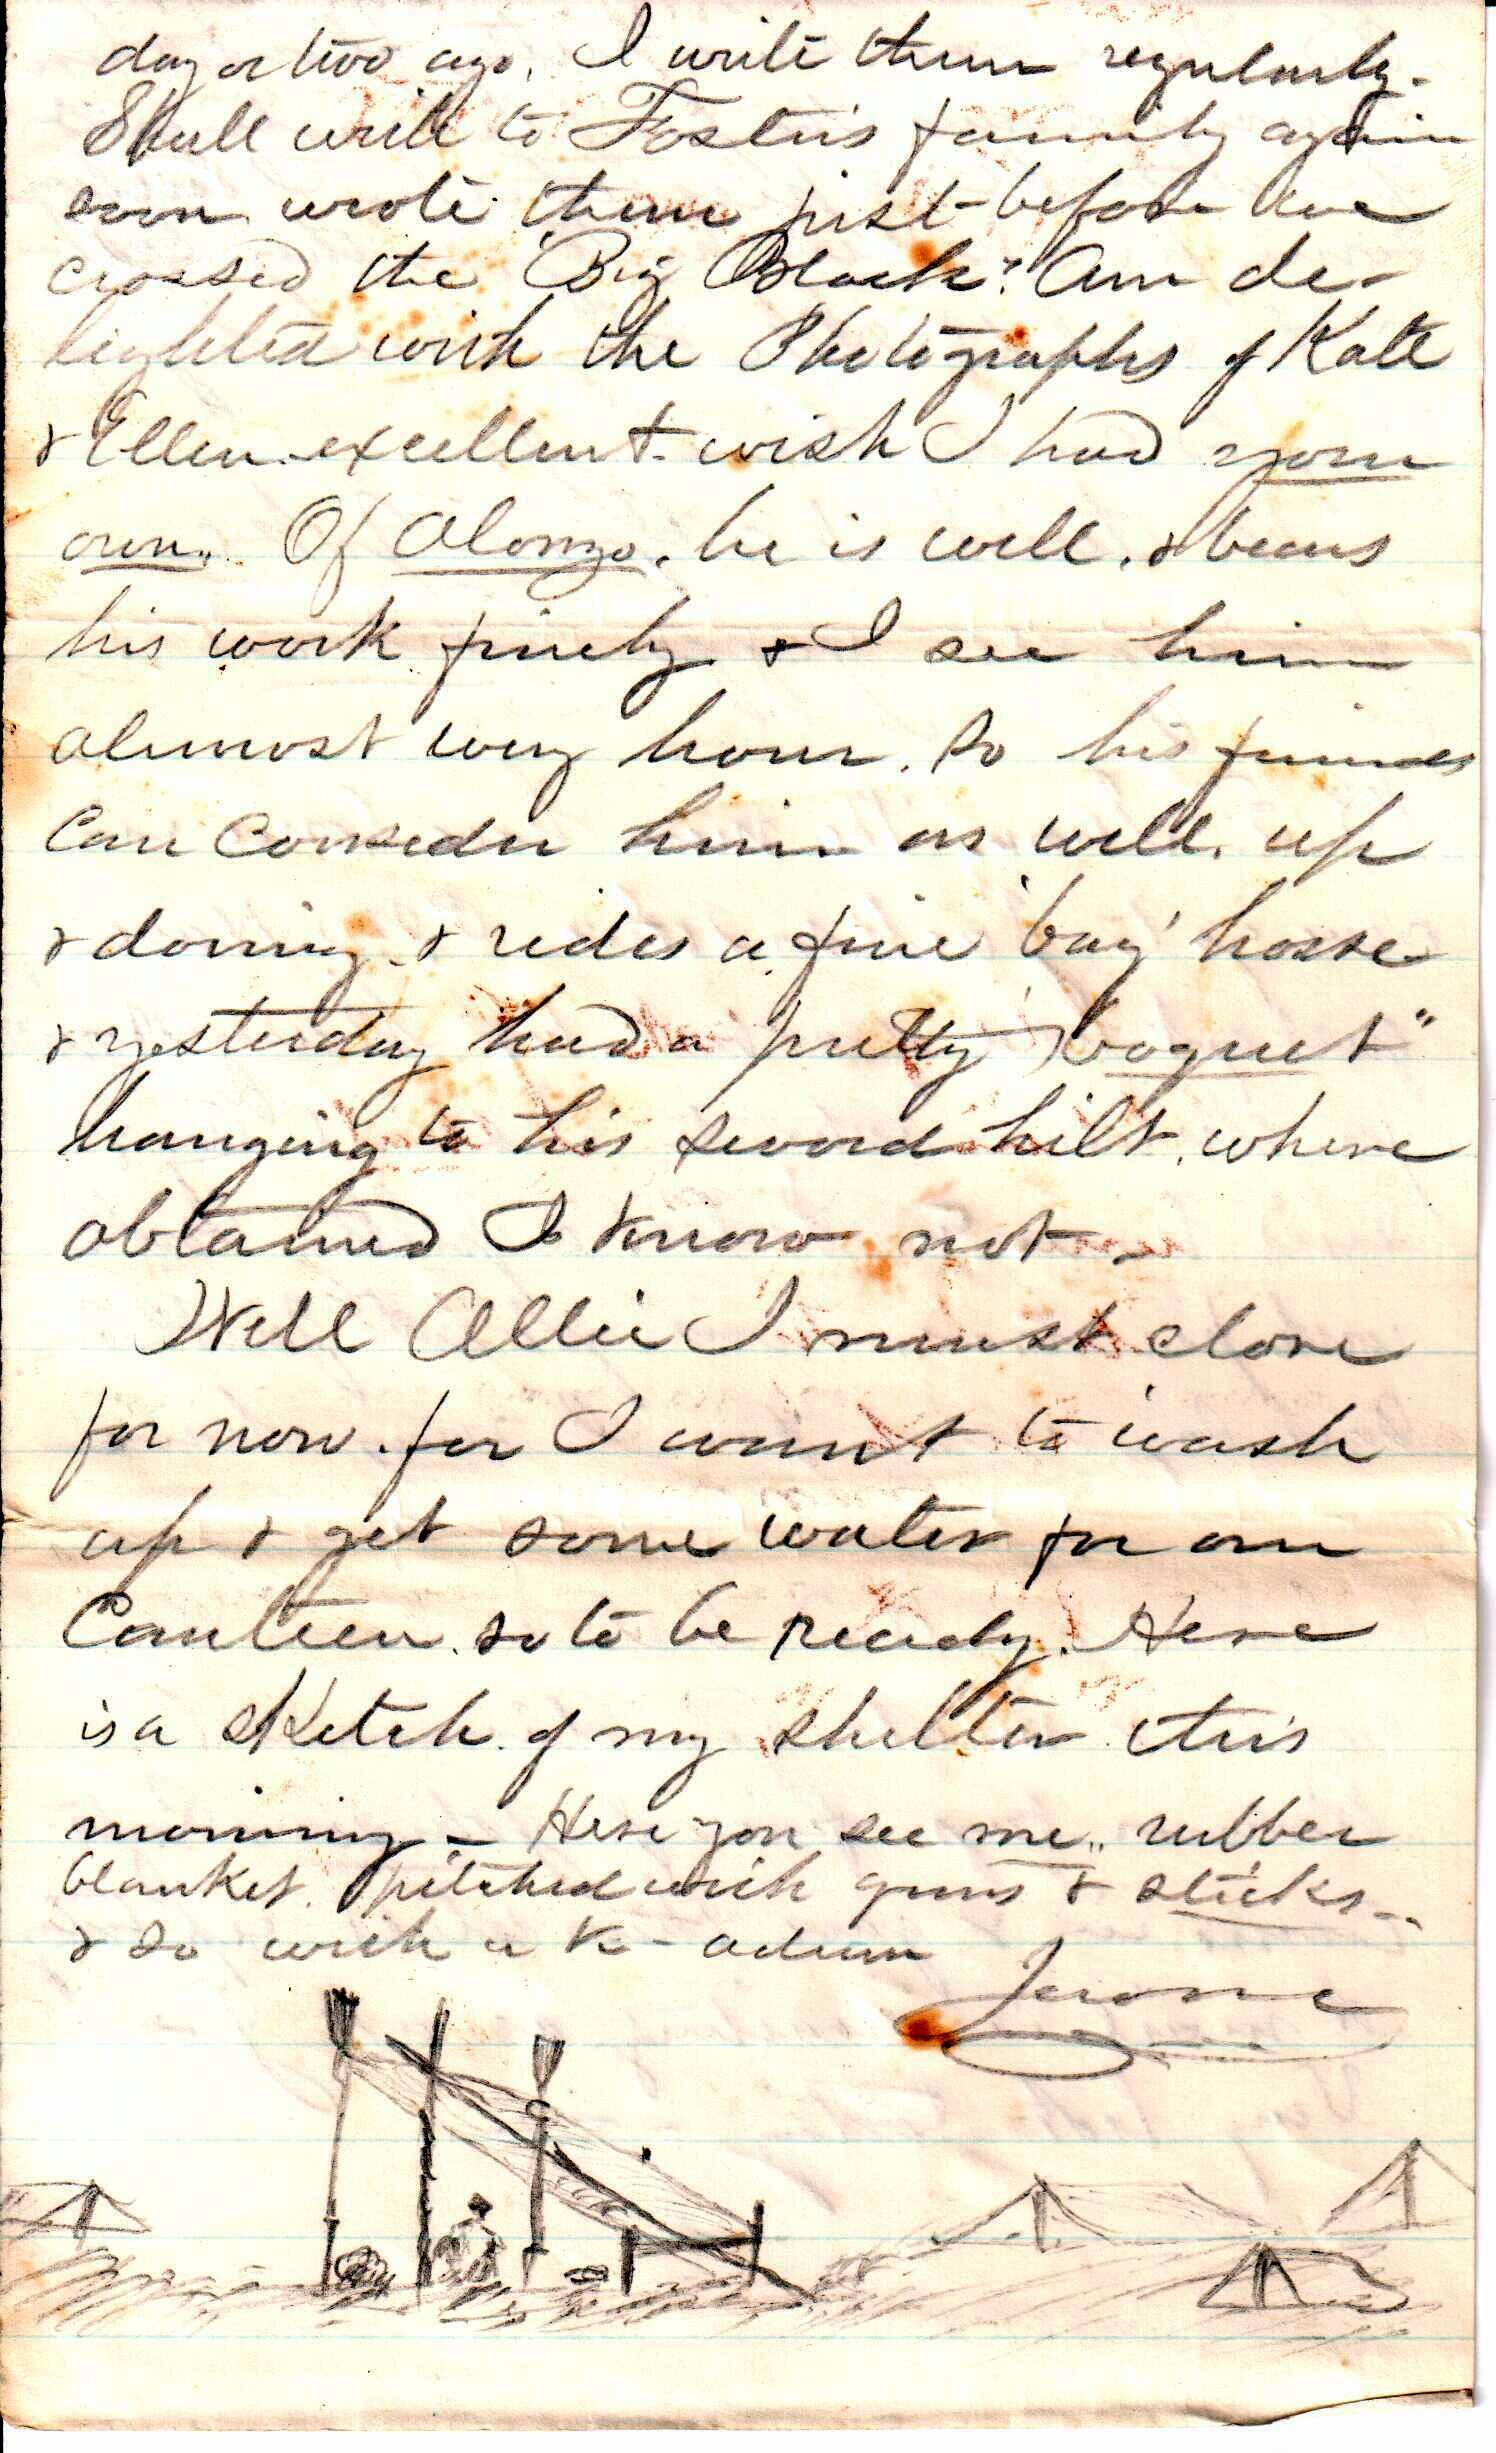 day or two ago. I write them regularly.
Shall write to Foster's family again
soon. wrote them just before we
crossed the "Big Black". Am de-
lighted with the Photographs of Kate
& Ellen. excellent. wish I had your
own.. Of Alonzo. he is well. & bears
his work finely & I see him
almost every hour. So his friends
Can Consider him as well. up
& doing. & rides a fine 'bay' horse
& yesterday had a pretty "boquet"
hanging to his sword hilt. where
obtained I know not.
Well Allie I must close
for now. for I want to wash
up & get some water for our
Canteen. so to be ready. Here
is a sketch of my shelter this
morning - Here you see me.. rubber
blanket. pitched with guns & sticks..
& so with a
Jerome